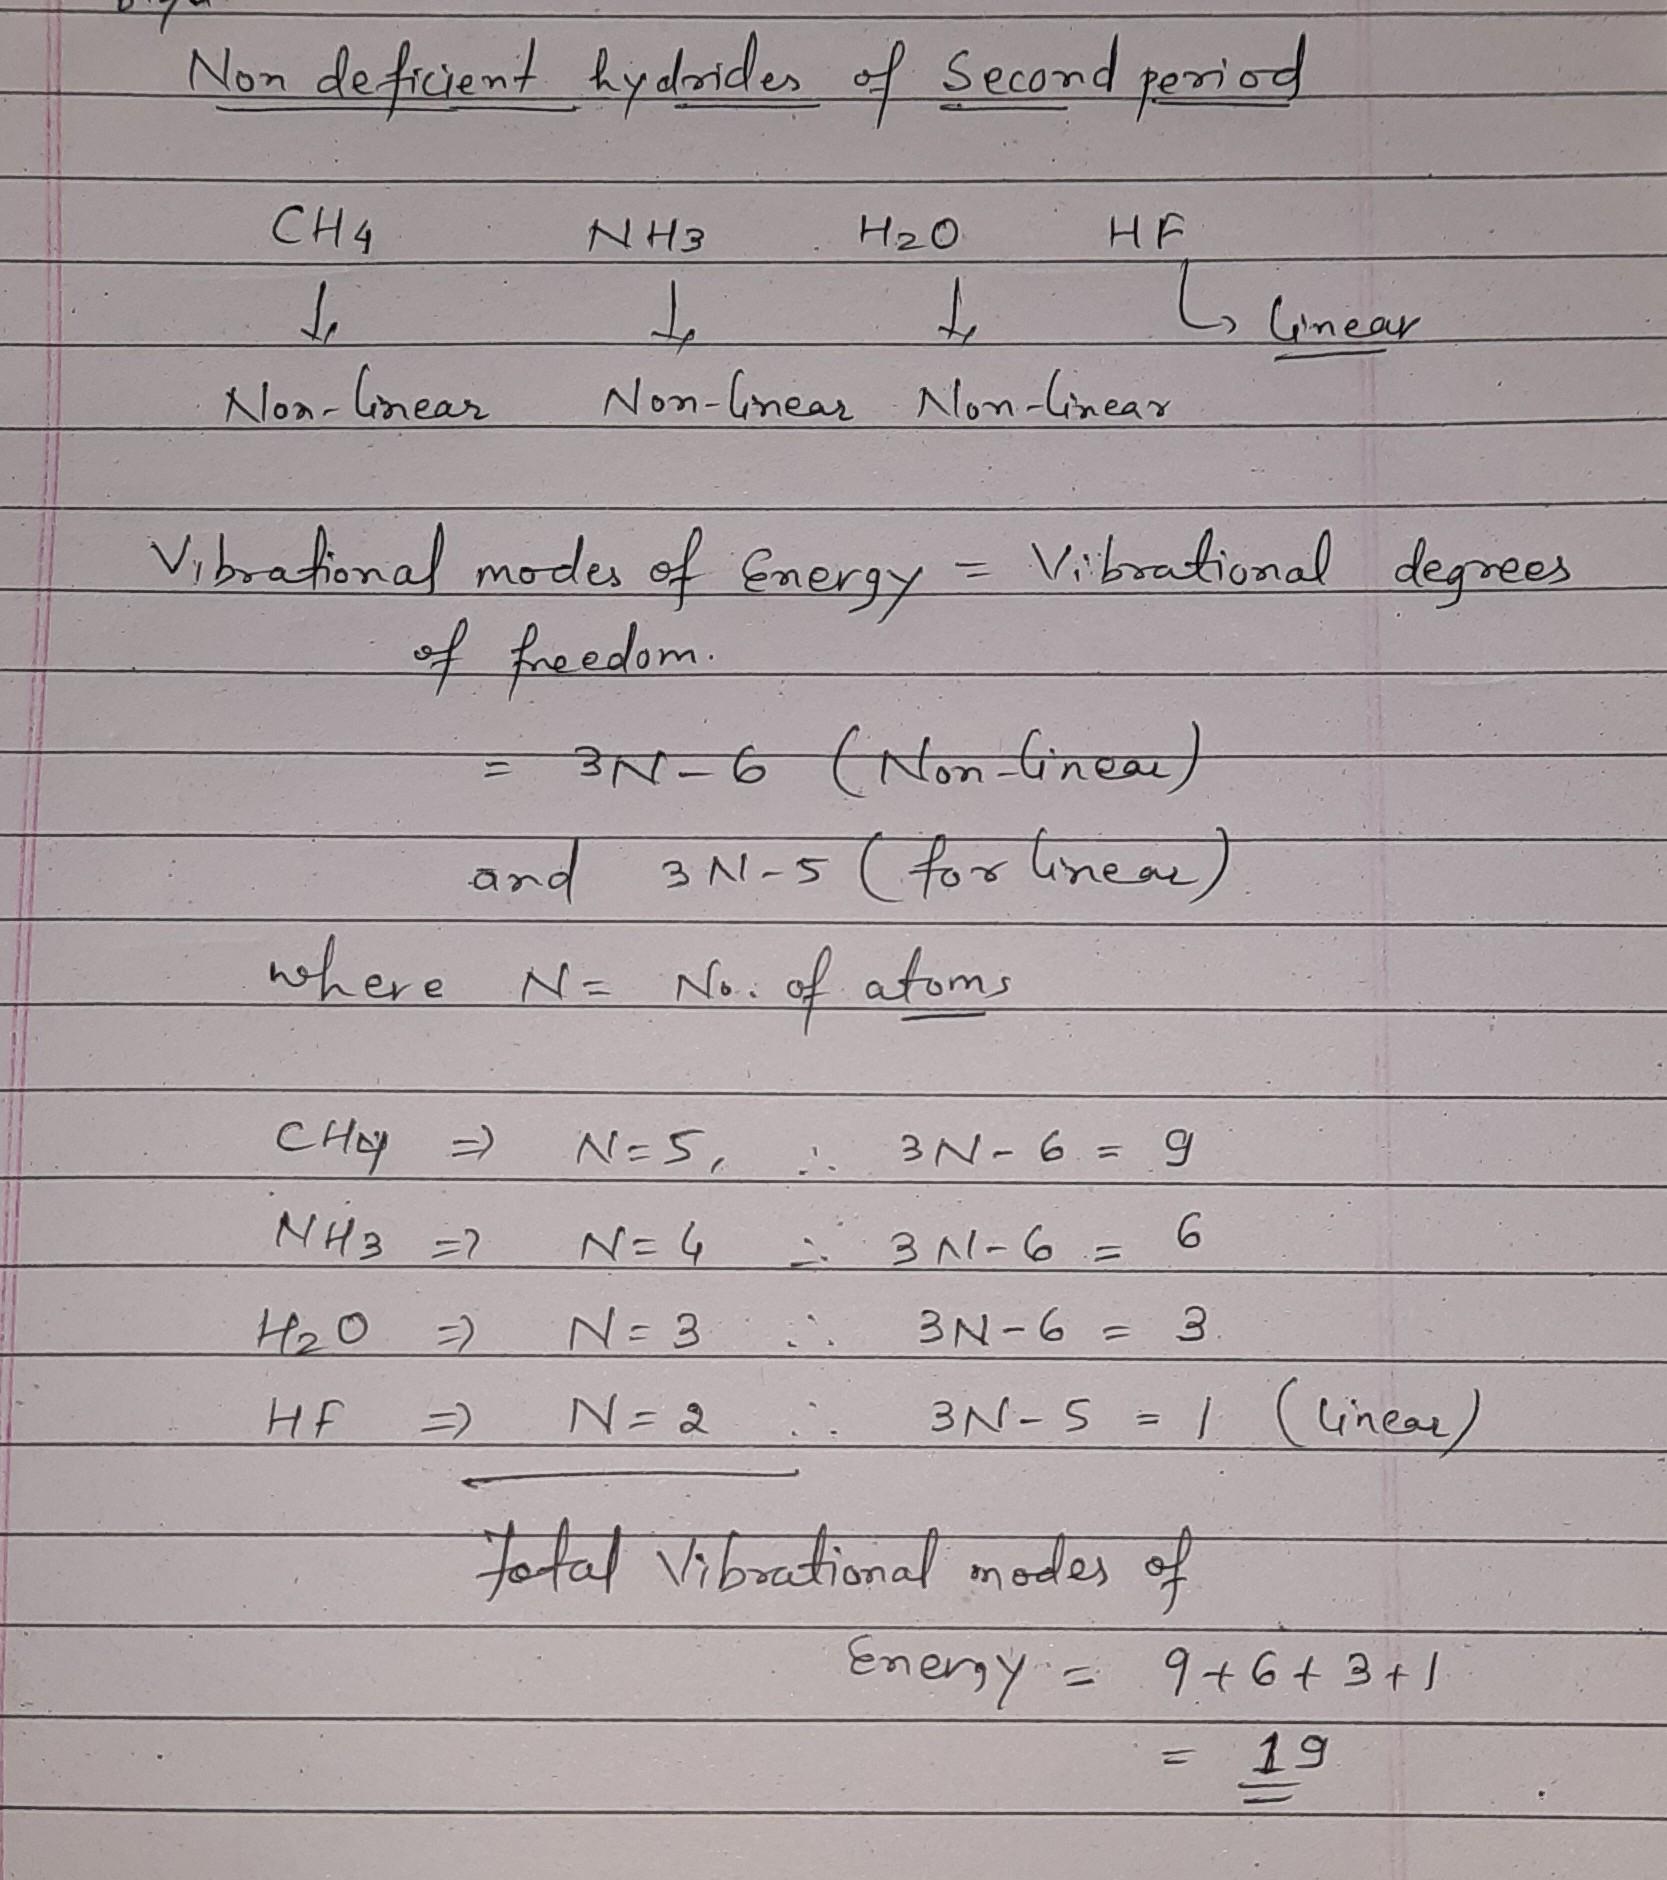 Non deficient hydrides of Second period
CH4 NH3 H2O HF
↓ ↓ ↓ ↳ linear
Non-linear Non-linear Non-linear
Vibrational modes of Energy = Vibrational degrees
of freedom.
= 3N-6 (Non-linear)
and 3N-5 (for linear)
where N = No. of atoms
CH4 => N=5, ∴ 3N-6 = 9
NH3 => N=4 ∴ 3N-6 = 6
H2O => N=3 ∴ 3N-6 = 3
HF => N=2 ∴ 3N-5 = 1 (linear)
Total Vibrational modes of
Energy = 9+6+3+1
= 19